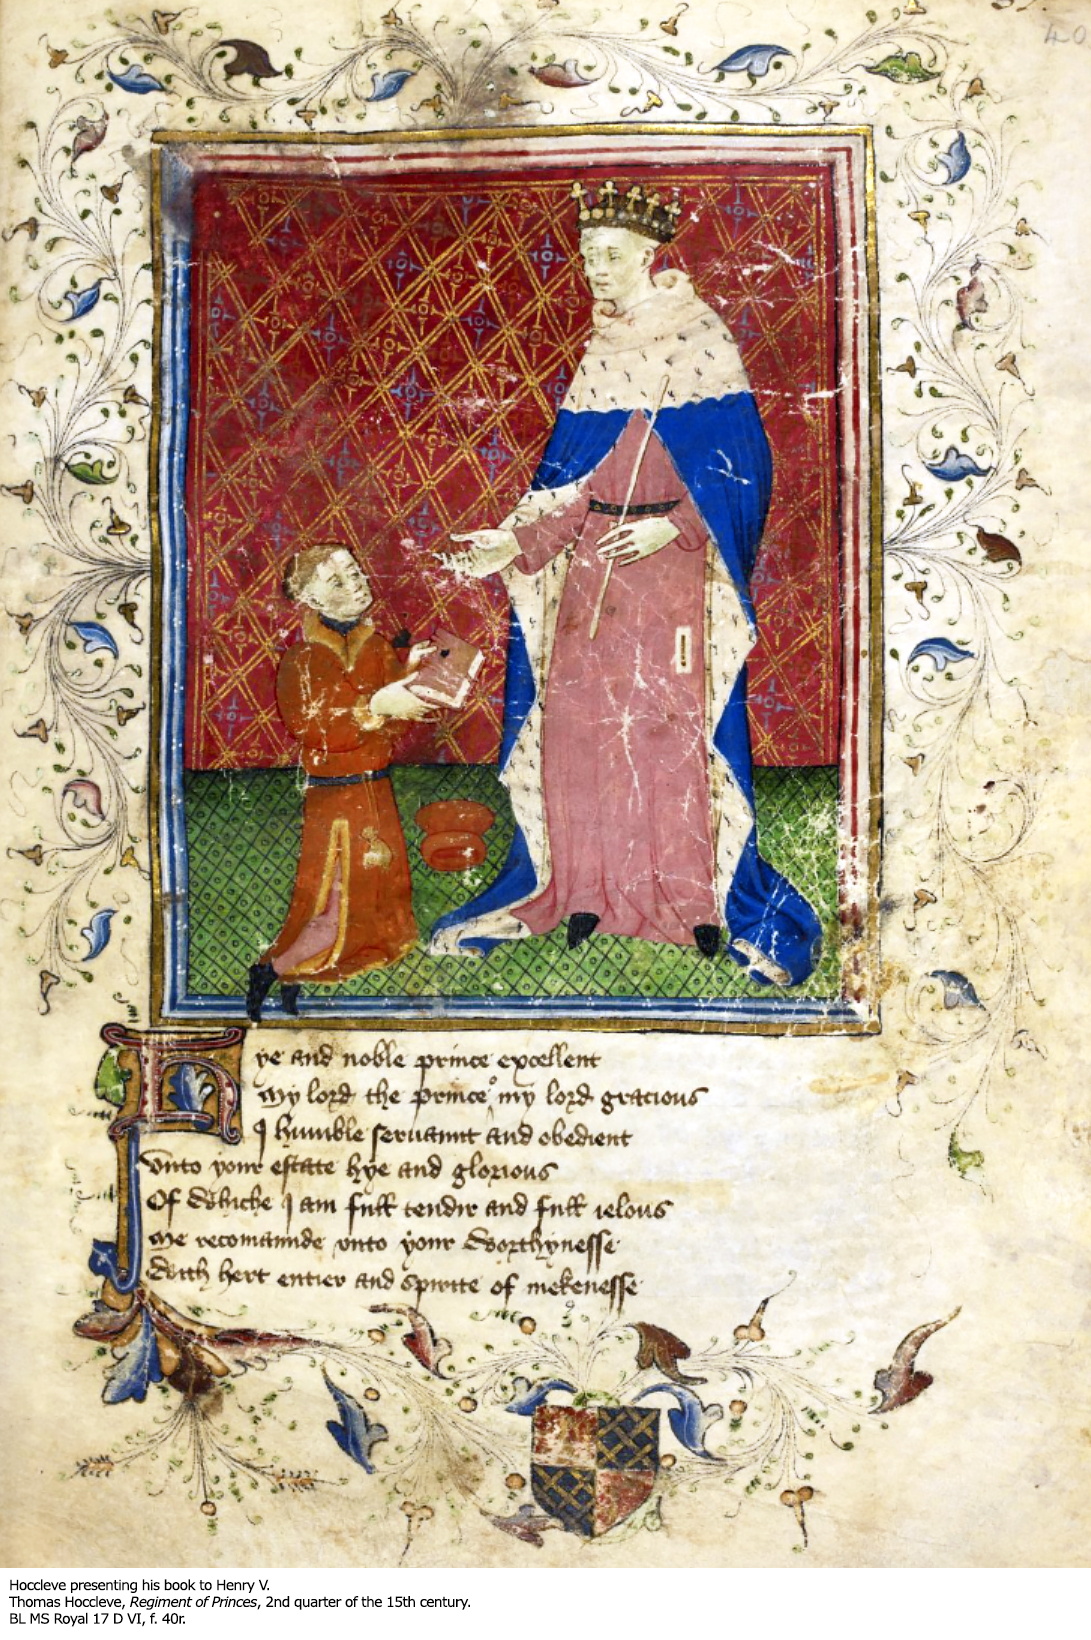 40
Hye and noble prince excellent
My lord the prince my lord gracious
I humble seruaunt and obedient
Vnto your estate hye and glorious
Of Whiche I am full tendir and full ielous
Me recomaunde vnto your Worthynesse
With hert entier and spirite of mekenesse
Hoccleve presenting his book to Henry V.
Thomas Hoccleve, Regiment of Princes, 2nd quarter of the 15th century.
BL MS Royal 17 D VI, f. 40r.